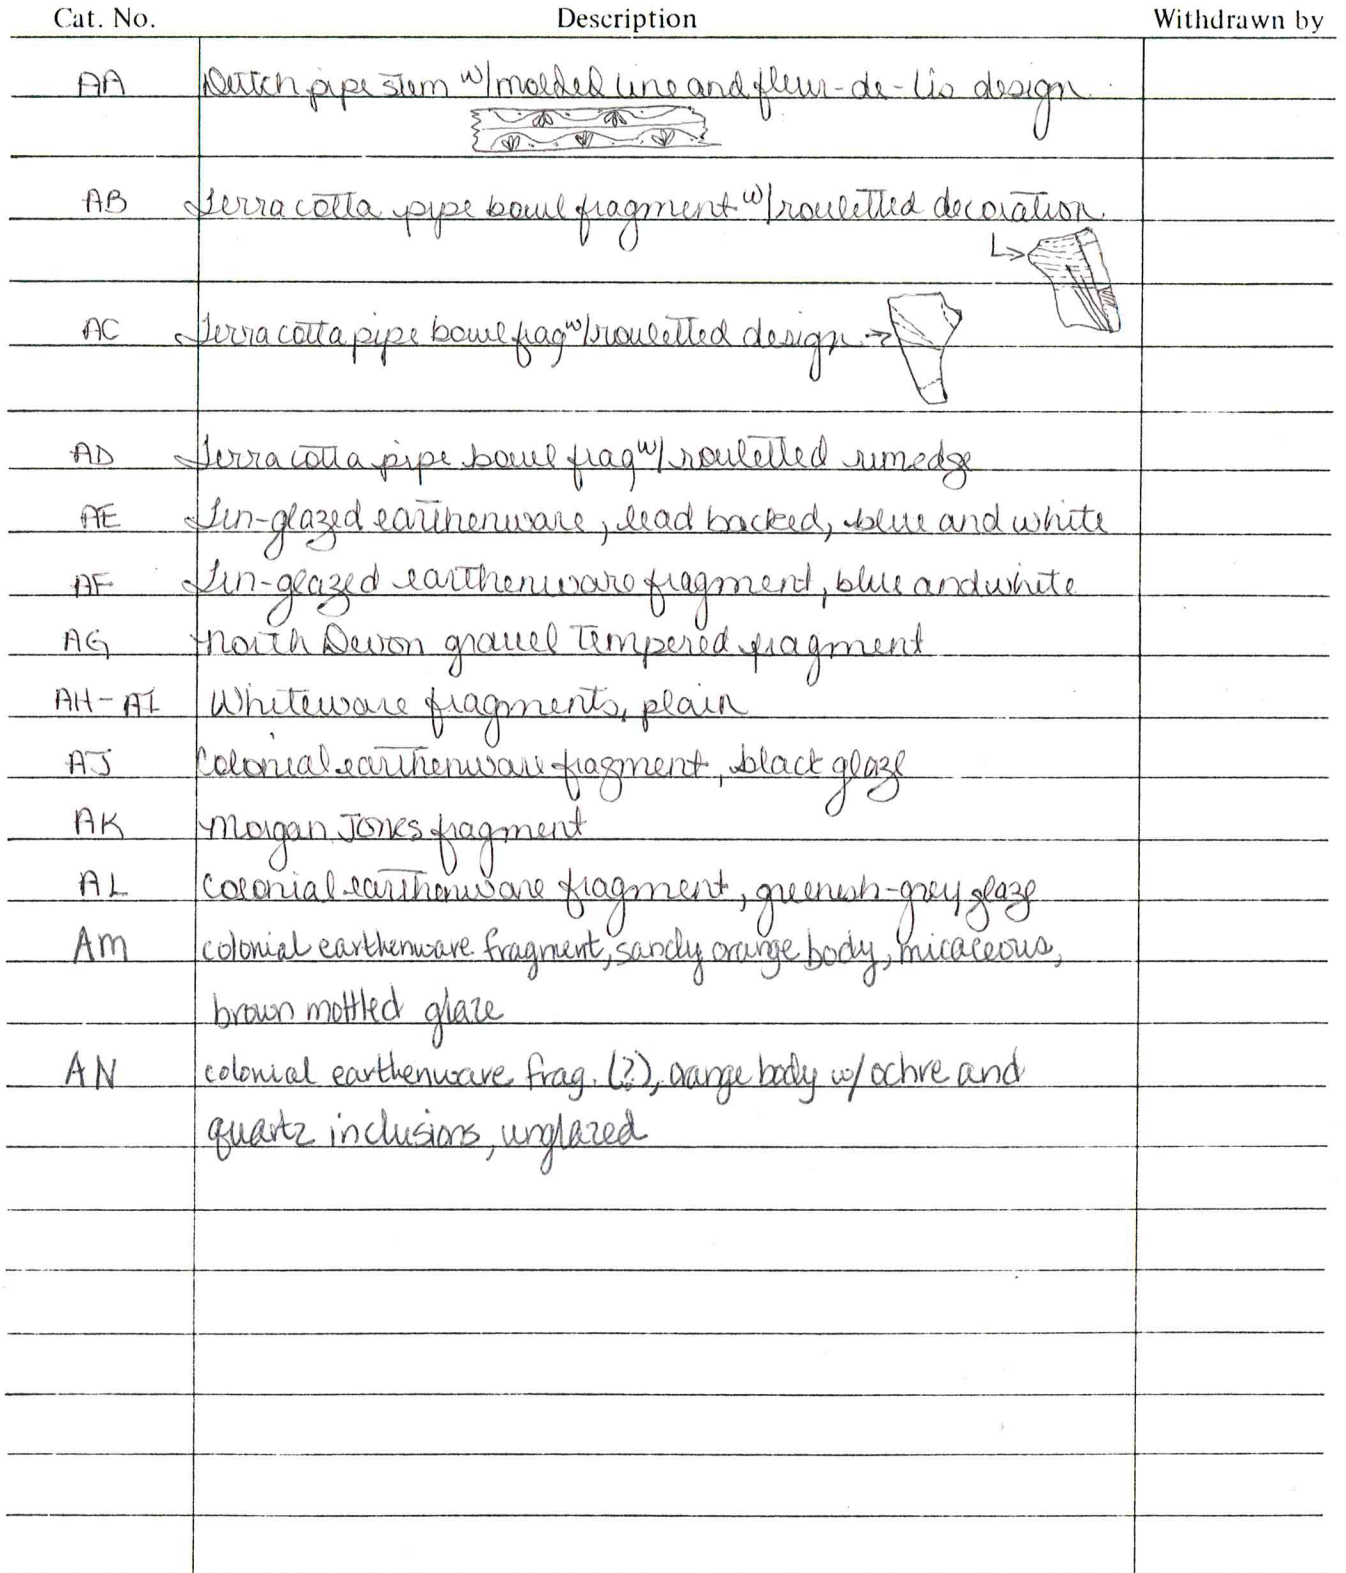 Cat. No. Description Withdrawn by
AA Dutch pipe stem w/ molded line and fleur-de-lis design
AB Terra cotta pipe bowl fragment w/ rouletted decoration
AC Terra cotta pipe bowl frag w/ rouletted design →
AD Terra cotta pipe bowl frag w/ rouletted rimedge
AE Tin-glazed earthenware, lead backed, blue and white
AF Tin-glazed earthenware fragment, blue and white
AG North Devon gravel Tempered fragment
AH-AI Whiteware fragments, plain
AJ colonial earthenware fragment, black glaze
AK Morgan Jones fragment
AL colonial earthenware fragment, greenish-grey glaze
AM colonial earthenware fragment, sandy orange body, micaceous,
brown mottled glaze
AN colonial earthenware frag. (?), orange body w/ ochre and
quartz inclusions, unglazed